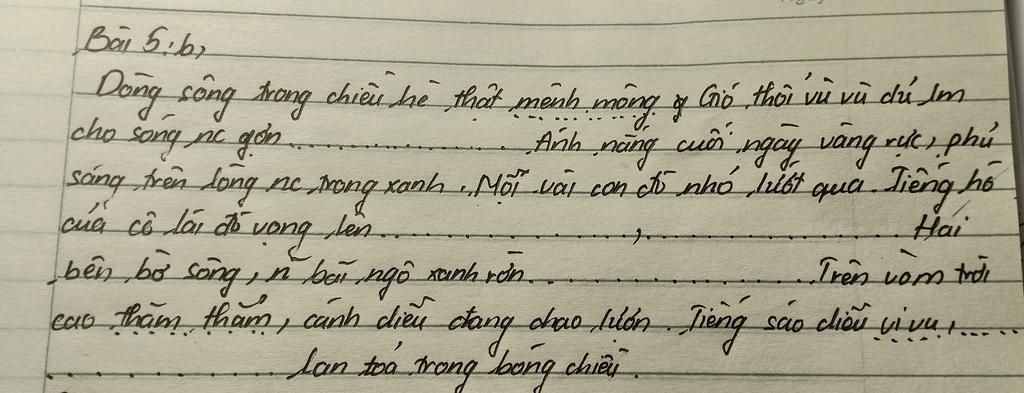 Bài 5: b,
Dòng sông trong chiều hè thật mênh mông. Gió thổi vù vù dú Im
cho sóng nc gợn................. Ánh nắng cuối ngày vàng rực, phủ
sáng trên lòng nc trong xanh. Một vài con đò nhỏ lướt qua. Tiếng hò
của cô lái đò vọng lên................., ................. Hai
bên bờ sông, n~ bãi ngô xanh rờn................. Trên vòm trời
cao thăm thẳm, cánh diều đang chao lượn. Tiếng sáo diều vi vu, .....
................. lan toả trong bóng chiều.